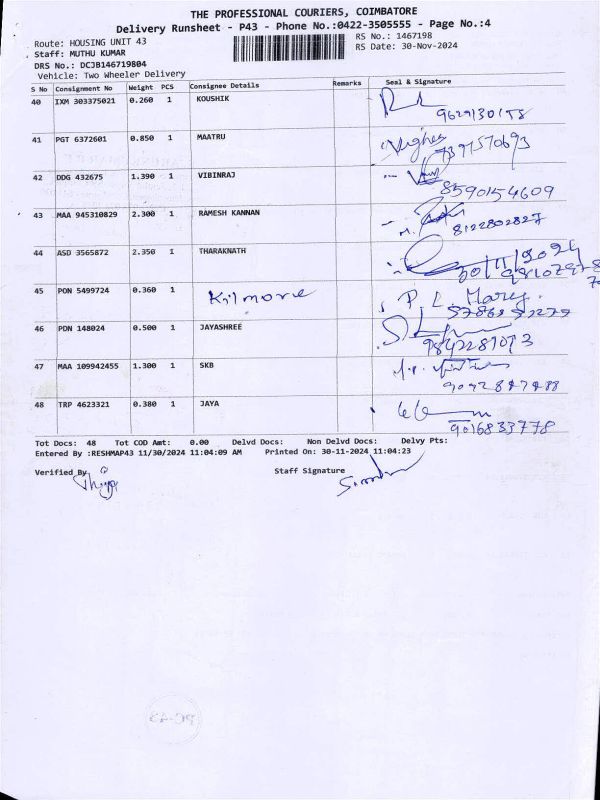 THE PROFESSIONAL COURIERS, COIMBATORE
Delivery Runsheet - P43 - Phone No.:0422-3505555 - Page No.:4
Route: HOUSING UNIT 43
RS No.: 1467198
Staff: MUTHU KUMAR
RS Date: 30-Nov-2024
DRS No.: DCJB146719804
Vehicle: Two Wheeler Delivery
S No Consignment No Weight PCS Consignee Details Remarks Seal & Signature
40 IXM 303375021 0.260 1 KOUSHIK
41 PGT 6372601 0.850 1 MAATRU
42 DDG 432675 1.390 1 VIBINRAJ
8590154609
43 MAA 945310829 2.300 1 RAMESH KANNAN
8122802827
44 ASD 3565872 2.350 1 THARAKNATH
30/11/2024
45 PON 5499724 0.360 1 Kilmore P. L. Mary.
46 PDN 148024 0.500 1 JAYASHREE
47 MAA 109942455 1.300 1 SKB
48 TRP 4623321 0.380 1 JAYA
9016833778
Tot Docs: 48 Tot COD Amt: 0.00 Delvd Docs: Non Delvd Docs: Delvy Pts:
Entered By :RESHMAP43 11/30/2024 11:04:09 AM Printed On: 30-11-2024 11:04:23
Verified By Staff Signature